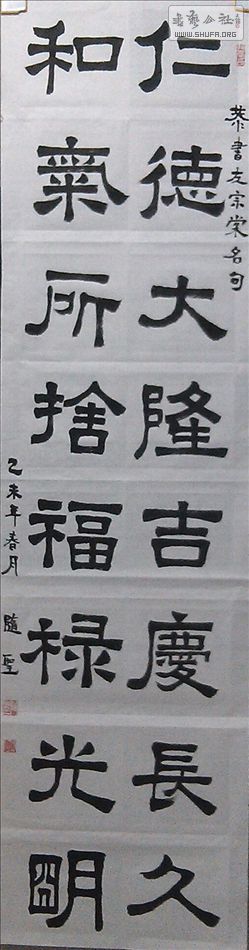 書藝公社
WWW.SHUFA.ORG
恭書左宗棠名句
仁德大隆吉慶長久
和氣所捨福禄光朙
乙未年春月
隨聖